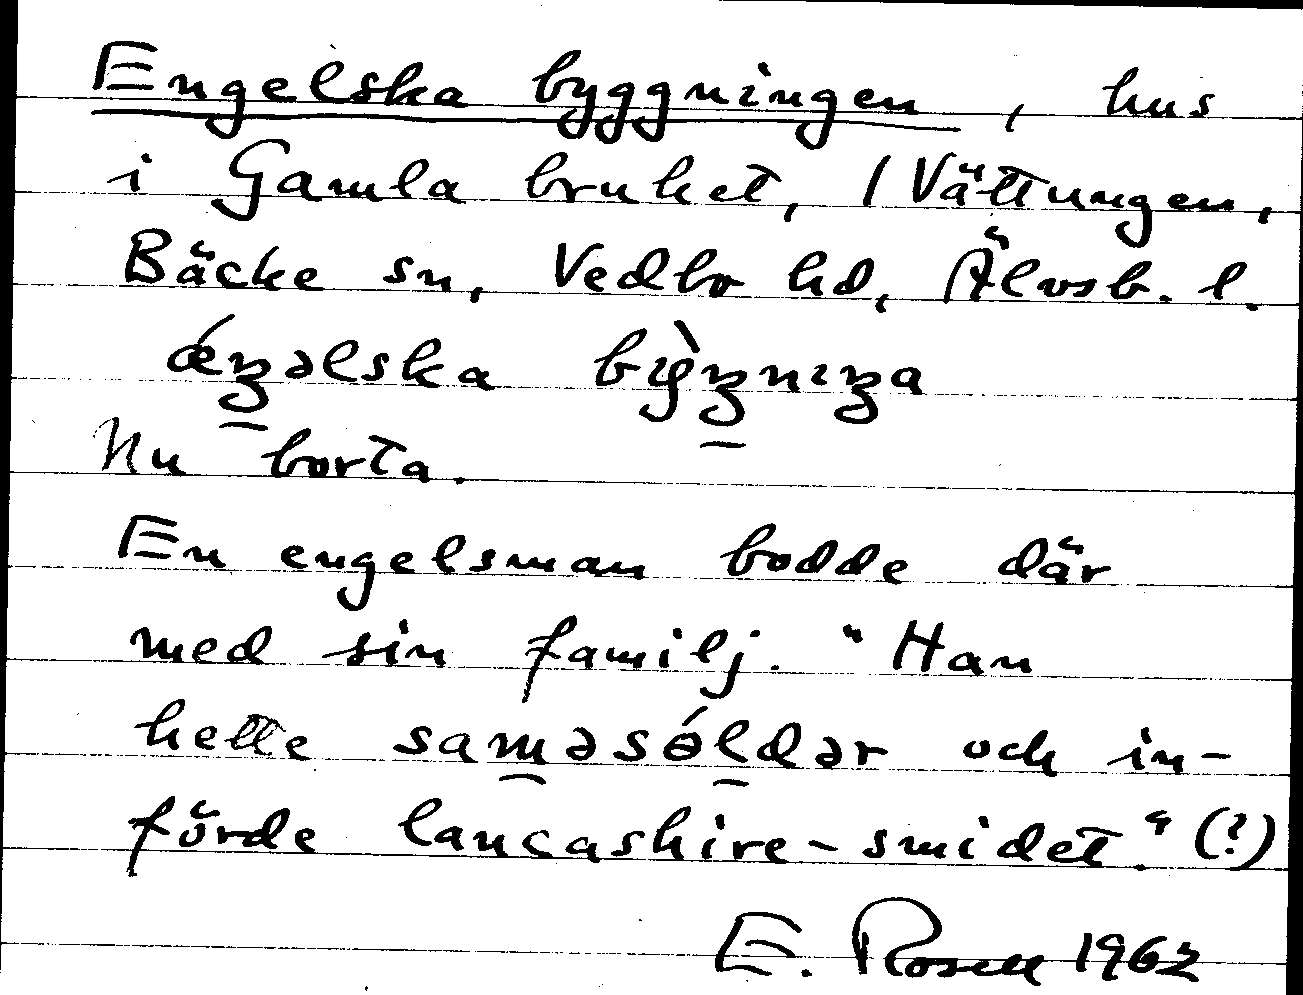 Engelska byggningen, hus
i Gamla bruket, /Vättungen,
Bäcke sn, Vedbo hd, Älvsb. l.
ǽŋəlska bỳŋnıŋa
Nu borta.
En engelsman bodde där
med sin familj. "Han
hette saməsə́ldər och in-
förde lancashire-smidet." (?)
E. Rosell 1962